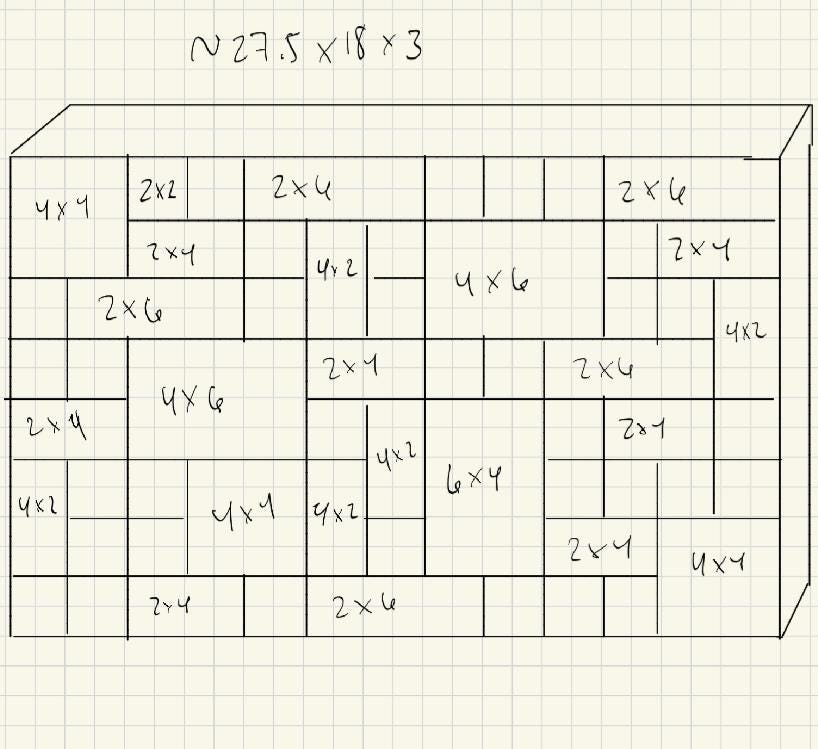 ~27.5 x 18 x 3
4x4 2x2 2x6 2x6
2x4 4x2 4x6 2x4
2x6 4x2
4x6 2x4 2x6
2x4 2x4
4x2 4x4 4x2 4x2 6x4
2x4 4x4
2x4 2x6